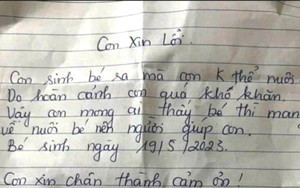 Con Xin Lỗi.
Con sinh bé ra mà con k thể nuôi
Do hoàn cảnh con quá khó khăn.
Vậy con mong ai thấy bé thì man
về nuôi bé nên người giúp con.
Bé sinh ngày 19/5/2023.
Con xin chân thành cảm ơn!